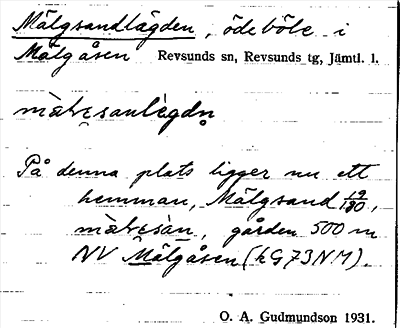 Mälgsandlägden, ödeböle i
Mälgåsen Revsunds sn, Revsunds tg, Jämtl. l.
På denna plats ligger nu ett
hemman, Mälgsand 1 9/180,
gården 500 m
NV Mälgåsen (kG73NM).
O. A. Gudmundson 1931.